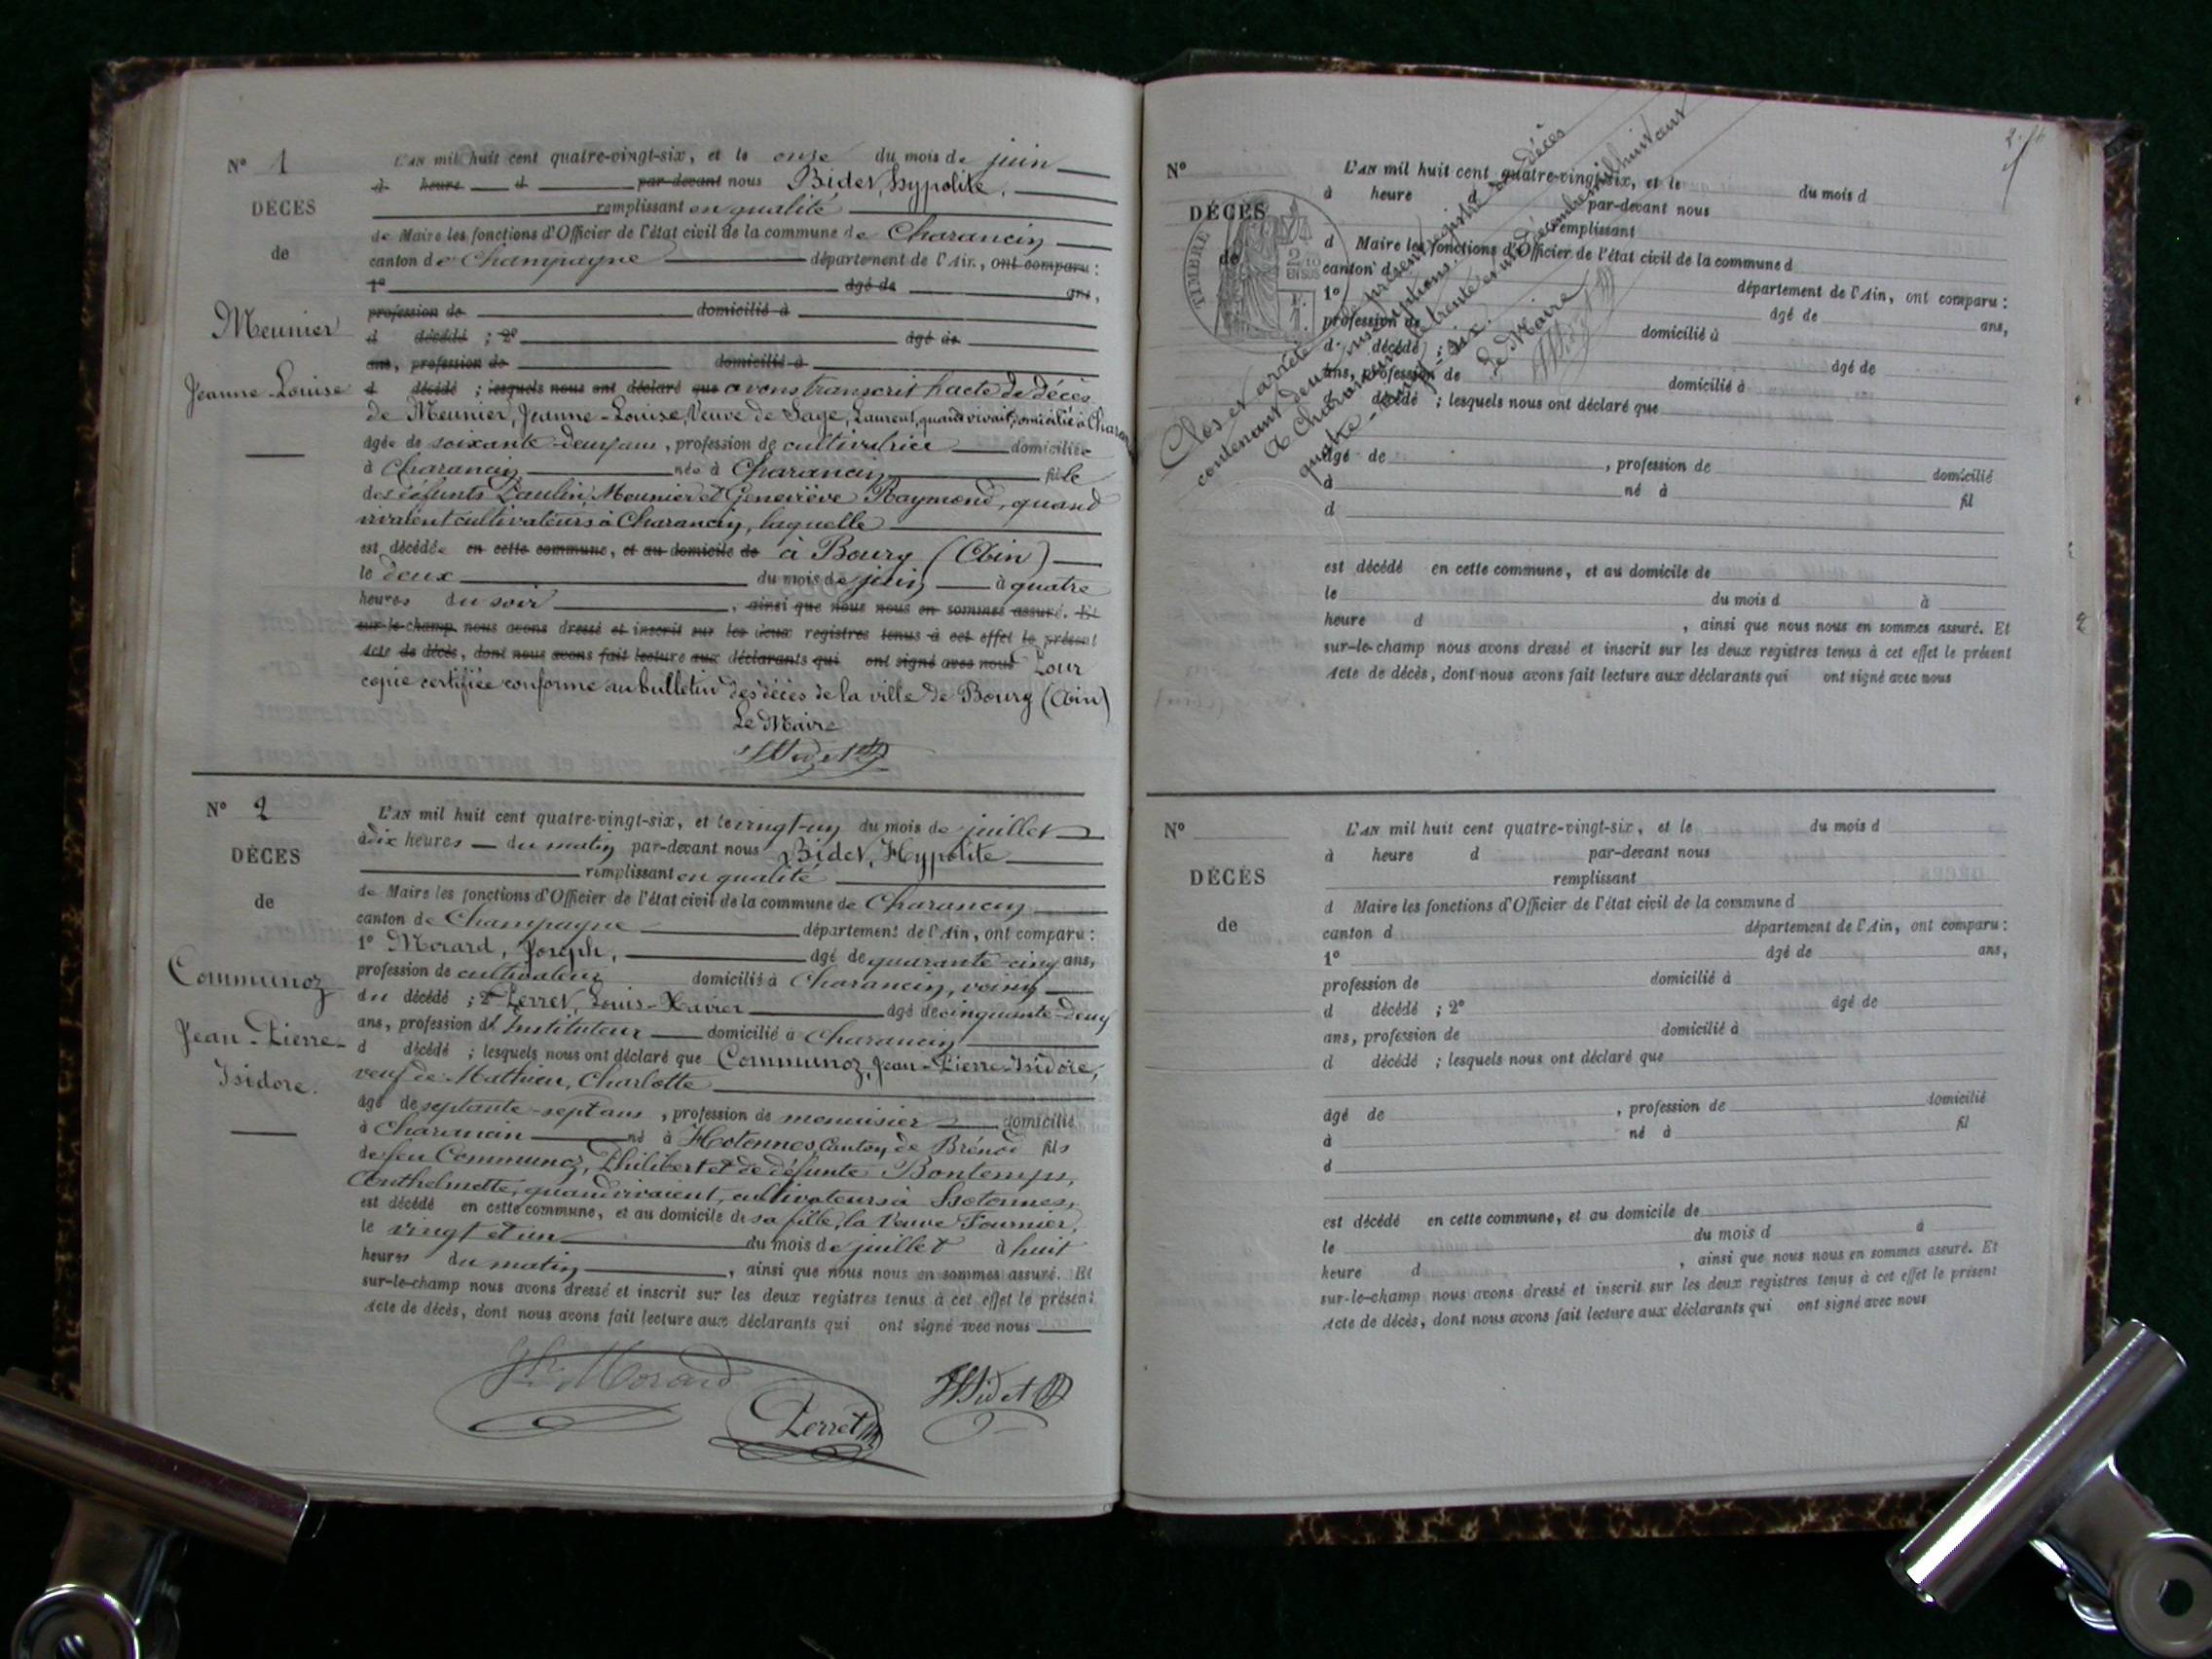 N° 1
DÉCÈS
de
Meunier
Jeanne-Louise
L'AN mil huit cent quatre-vingt-six, et le onze du mois de juin
d heures d par-devant nous Bidet, Hypolite,
remplissant en qualité
de Maire les fonctions d'Officier de l'état civil de la commune de Charancin
canton de Champagne département de l'Ain, ont comparu :
1° âgé de ans,
profession de domicilié à
d décédé ; 2° âgé de
ans, profession de domicilié à
d décédé ; lesquels nous ont déclaré que avons transcrit l'acte de décès
de Meunier, Jeanne-Louise, Veuve de Sage, Laurent, quand vivait, domicilié à Charancin
âgée de soixante-deux ans, profession de cultivatrice domiciliée
à Charancin née à Charancin fille
des défunts Paulin Meunier et Geneviève Raymond, quand
vivaient cultivateurs à Charancin, laquelle
est décédée en cette commune, et au domicile de à Bourg (Ain)
le deux du mois de juin à quatre
heures du soir , ainsi que nous nous en sommes assuré. Et
sur-le-champ nous avons dressé et inscrit sur les deux registres tenus à cet effet le présent
Acte de décès, dont nous avons fait lecture aux déclarants qui ont signé avec nous Pour
copie certifiée conforme au bulletin des décès de la ville de Bourg (Ain)
Le Maire
HBidet
N° 2
DÉCÈS
de
Communoz
Jean-Pierre-
Isidore.
L'AN mil huit cent quatre-vingt-six, et le vingt-un du mois de juillet
à dix heures du matin par-devant nous Bidet, Hypolite
remplissant en qualité
de Maire les fonctions d'Officier de l'état civil de la commune de Charancin
canton de Champagne département de l'Ain, ont comparu :
1° Morard, Joseph, âgé de quarante-cinq ans,
profession de cultivateur domicilié à Charancin, voisin
du décédé ; 2° Perret, Louis-Xavier âgé de cinquante-deux
ans, profession d'Instituteur domicilié à Charancin
d décédé ; lesquels nous ont déclaré que Communoz, Jean-Pierre-Isidore,
veuf de Mathieu, Charlotte
âgé de septante-sept ans , profession de menuisier domicilié
à Charancin né à Hotonnes, Canton de Brénod fils
de feu Communoz, Philibert et de défunte Bontemps,
Anthelmette, quand vivaient, cultivateurs à Hotonnes,
est décédé en cette commune, et au domicile de sa fille, la Veuve Fournier,
le vingt et un du mois de juillet à huit
heures du matin , ainsi que nous nous en sommes assuré. Et
sur-le-champ nous avons dressé et inscrit sur les deux registres tenus à cet effet le présent
Acte de décès, dont nous avons fait lecture aux déclarants qui ont signé avec nous
Jh Morard
Perret
HBidet
2
N°
DÉCÈS
de
TIMBRE
2/10
EN SUS
L'AN mil huit cent quatre-vingt-six, et le du mois d
à heure d par-devant nous
remplissant
d Maire les fonctions d'Officier de l'état civil de la commune d
canton d département de l'Ain, ont comparu :
1° âgé de ans,
profession de domicilié à
d décédé ; âgé de
ans, profession de domicilié à
d décédé ; lesquels nous ont déclaré que
âgé de , profession de domicilié
à né à fil
d
est décédé en cette commune, et au domicile de
le du mois d à
heure d , ainsi que nous nous en sommes assuré. Et
sur-le-champ nous avons dressé et inscrit sur les deux registres tenus à cet effet le présent
Acte de décès, dont nous avons fait lecture aux déclarants qui ont signé avec nous
Clos et arrêté le présent registre des décès
contenant deux inscriptions
à Charancin le trente et un décembre mil huit cent
quatre-vingt-six.
Le Maire
HBidet
N°
DÉCÈS
de
L'AN mil huit cent quatre-vingt-six, et le du mois d
à heure d par-devant nous
remplissant
d Maire les fonctions d'Officier de l'état civil de la commune d
canton d département de l'Ain, ont comparu :
1° âgé de ans,
profession de domicilié à
d décédé ; 2° âgé de
ans, profession de domicilié à
d décédé ; lesquels nous ont déclaré que
âgé de , profession de domicilié
à né à fil
d
est décédé en cette commune, et au domicile de
le du mois d à
heure d , ainsi que nous nous en sommes assuré. Et
sur-le-champ nous avons dressé et inscrit sur les deux registres tenus à cet effet le présent
Acte de décès, dont nous avons fait lecture aux déclarants qui ont signé avec nous